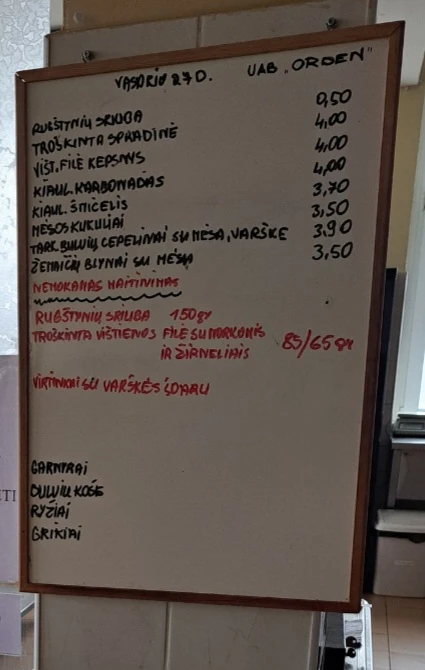 VASARIO 27 D. UAB „ORDEN"
RŪGŠTYNIŲ SRIUBA 0,50
TROŠKINTA SPRADINĖ 4,00
VIŠT. FILĖ KEPSNYS 4,00
KIAUL. KARBONADAS 4,00
KIAUL. ŠNICELIS 3,70
MĖSOS KUKULIAI 3,50
TARK. BULVIŲ CEPELINAI SU MĖSA, VARŠKE 3,90
ŽEMAIČIŲ BLYNAI SU MĖSA 3,50
NEMOKAMAS MAITINIMAS
RŪGŠTYNIŲ SRIUBA 150gr
TROŠKINTA VIŠTIENOS FILĖ SU MORKOMIS
IR ŽIRNELIAIS 85/65 gr
VIRTINIAI SU VARŠKĖS ĮDARU
GARNYRAI
BULVIŲ KOŠĖ
RYŽIAI
GRIKIAI
ETI